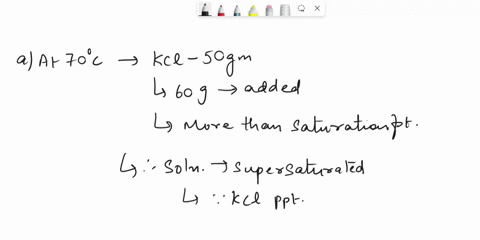 a) At 70°C → KCl - 50gm
↳ 60g → added
↳ More than saturation pt.
↳ ∴ Soln. → Supersaturated
↳ ∵ KCl ppt.